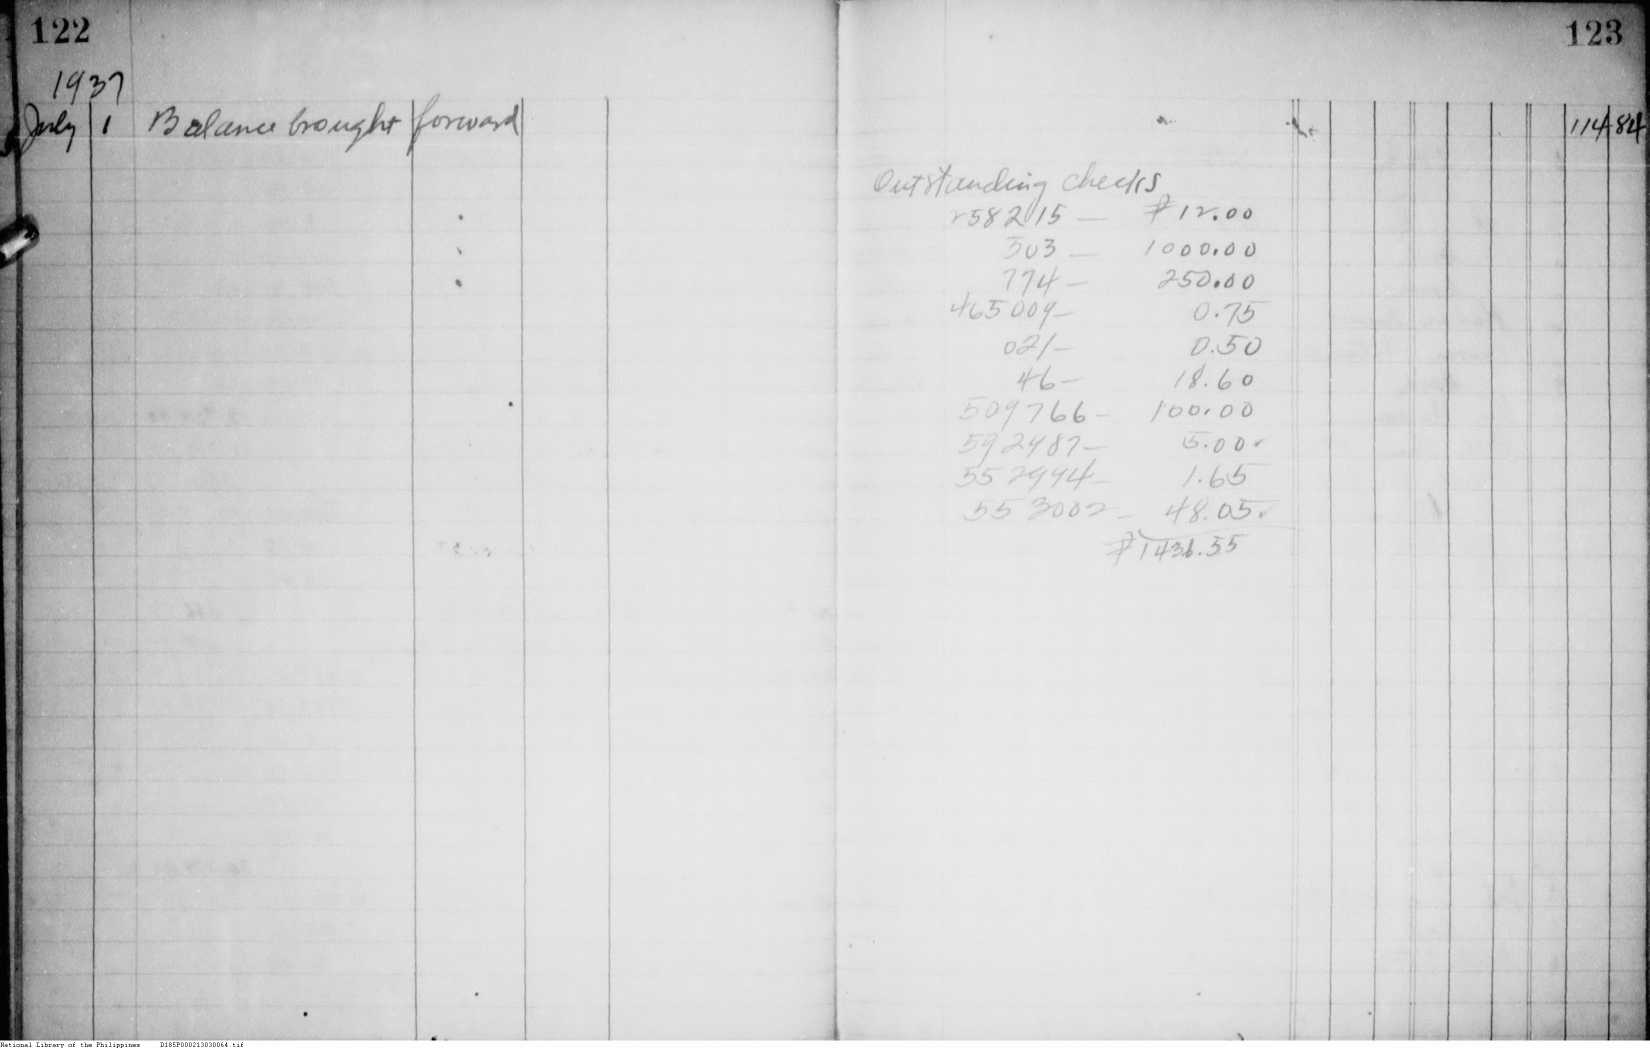 122
123
1937
July 1 Balance brought forward 114 84
Outstanding checks
258215 — ₱12.00
303 — 1000.00
774 — 250.00
465009 — 0.75
021 — 0.50
46 — 18.60
509766 — 100.00
592487 — 5.00
552994 — 1.65
553002 — 48.05
₱1436.55
National Library of the Philippines D185P000213030064.tif